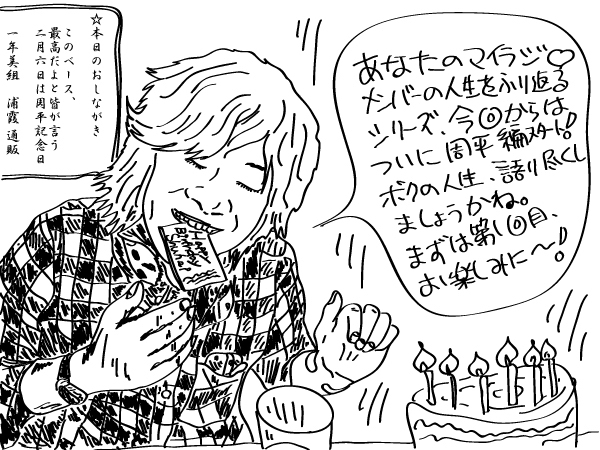 ☆本日のおしながき
このベース、
最高だよと皆が言う
二月六日は周平記念日
一年美組　浦霞 通販
あなたのマイラジ♡
メンバーの人生をふり返る
シリーズ、今回からは
ついに周平編スタート!
ボクの人生、語り尽くし
ましょうかね。
まずは第1回目、
お楽しみに〜!
Happy
Birthday
Shuhei